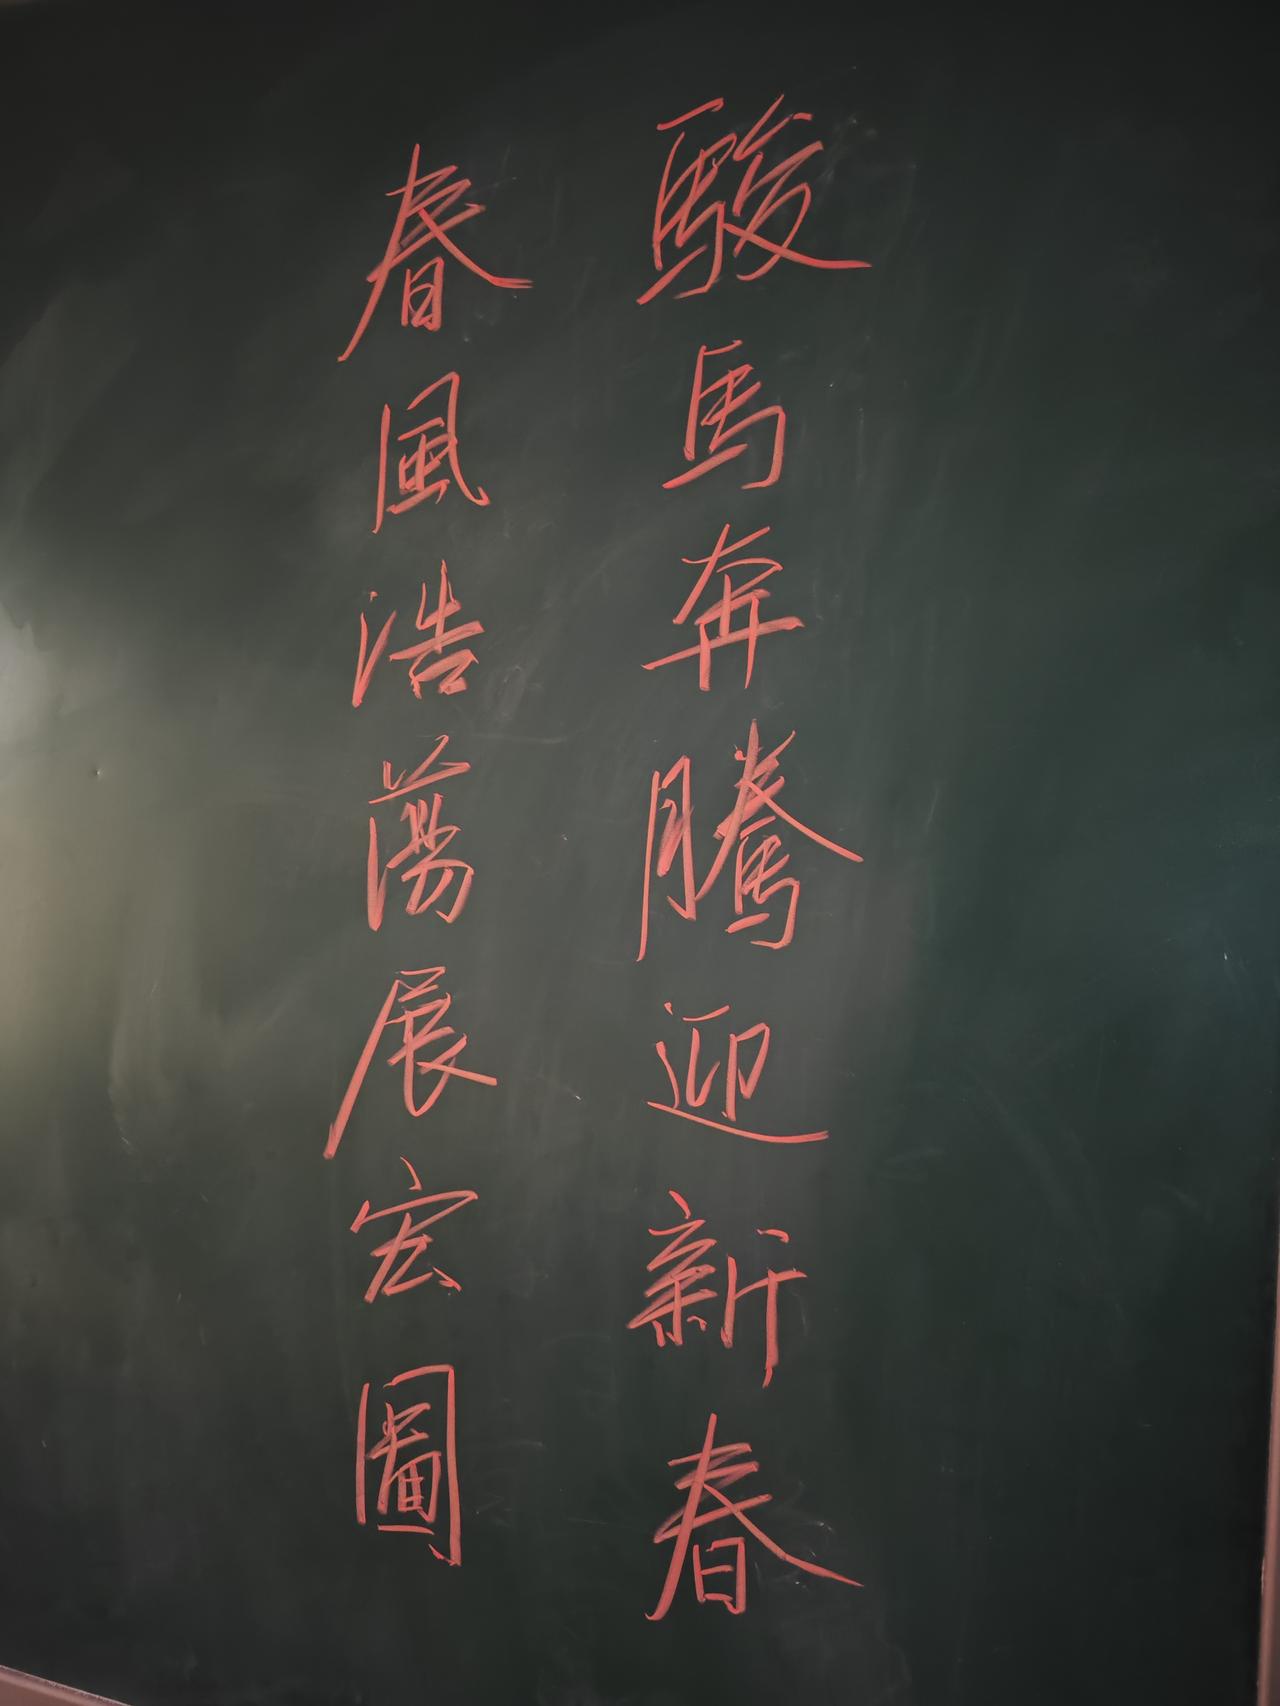 駿馬奔騰迎新春
春風浩蕩展宏圖